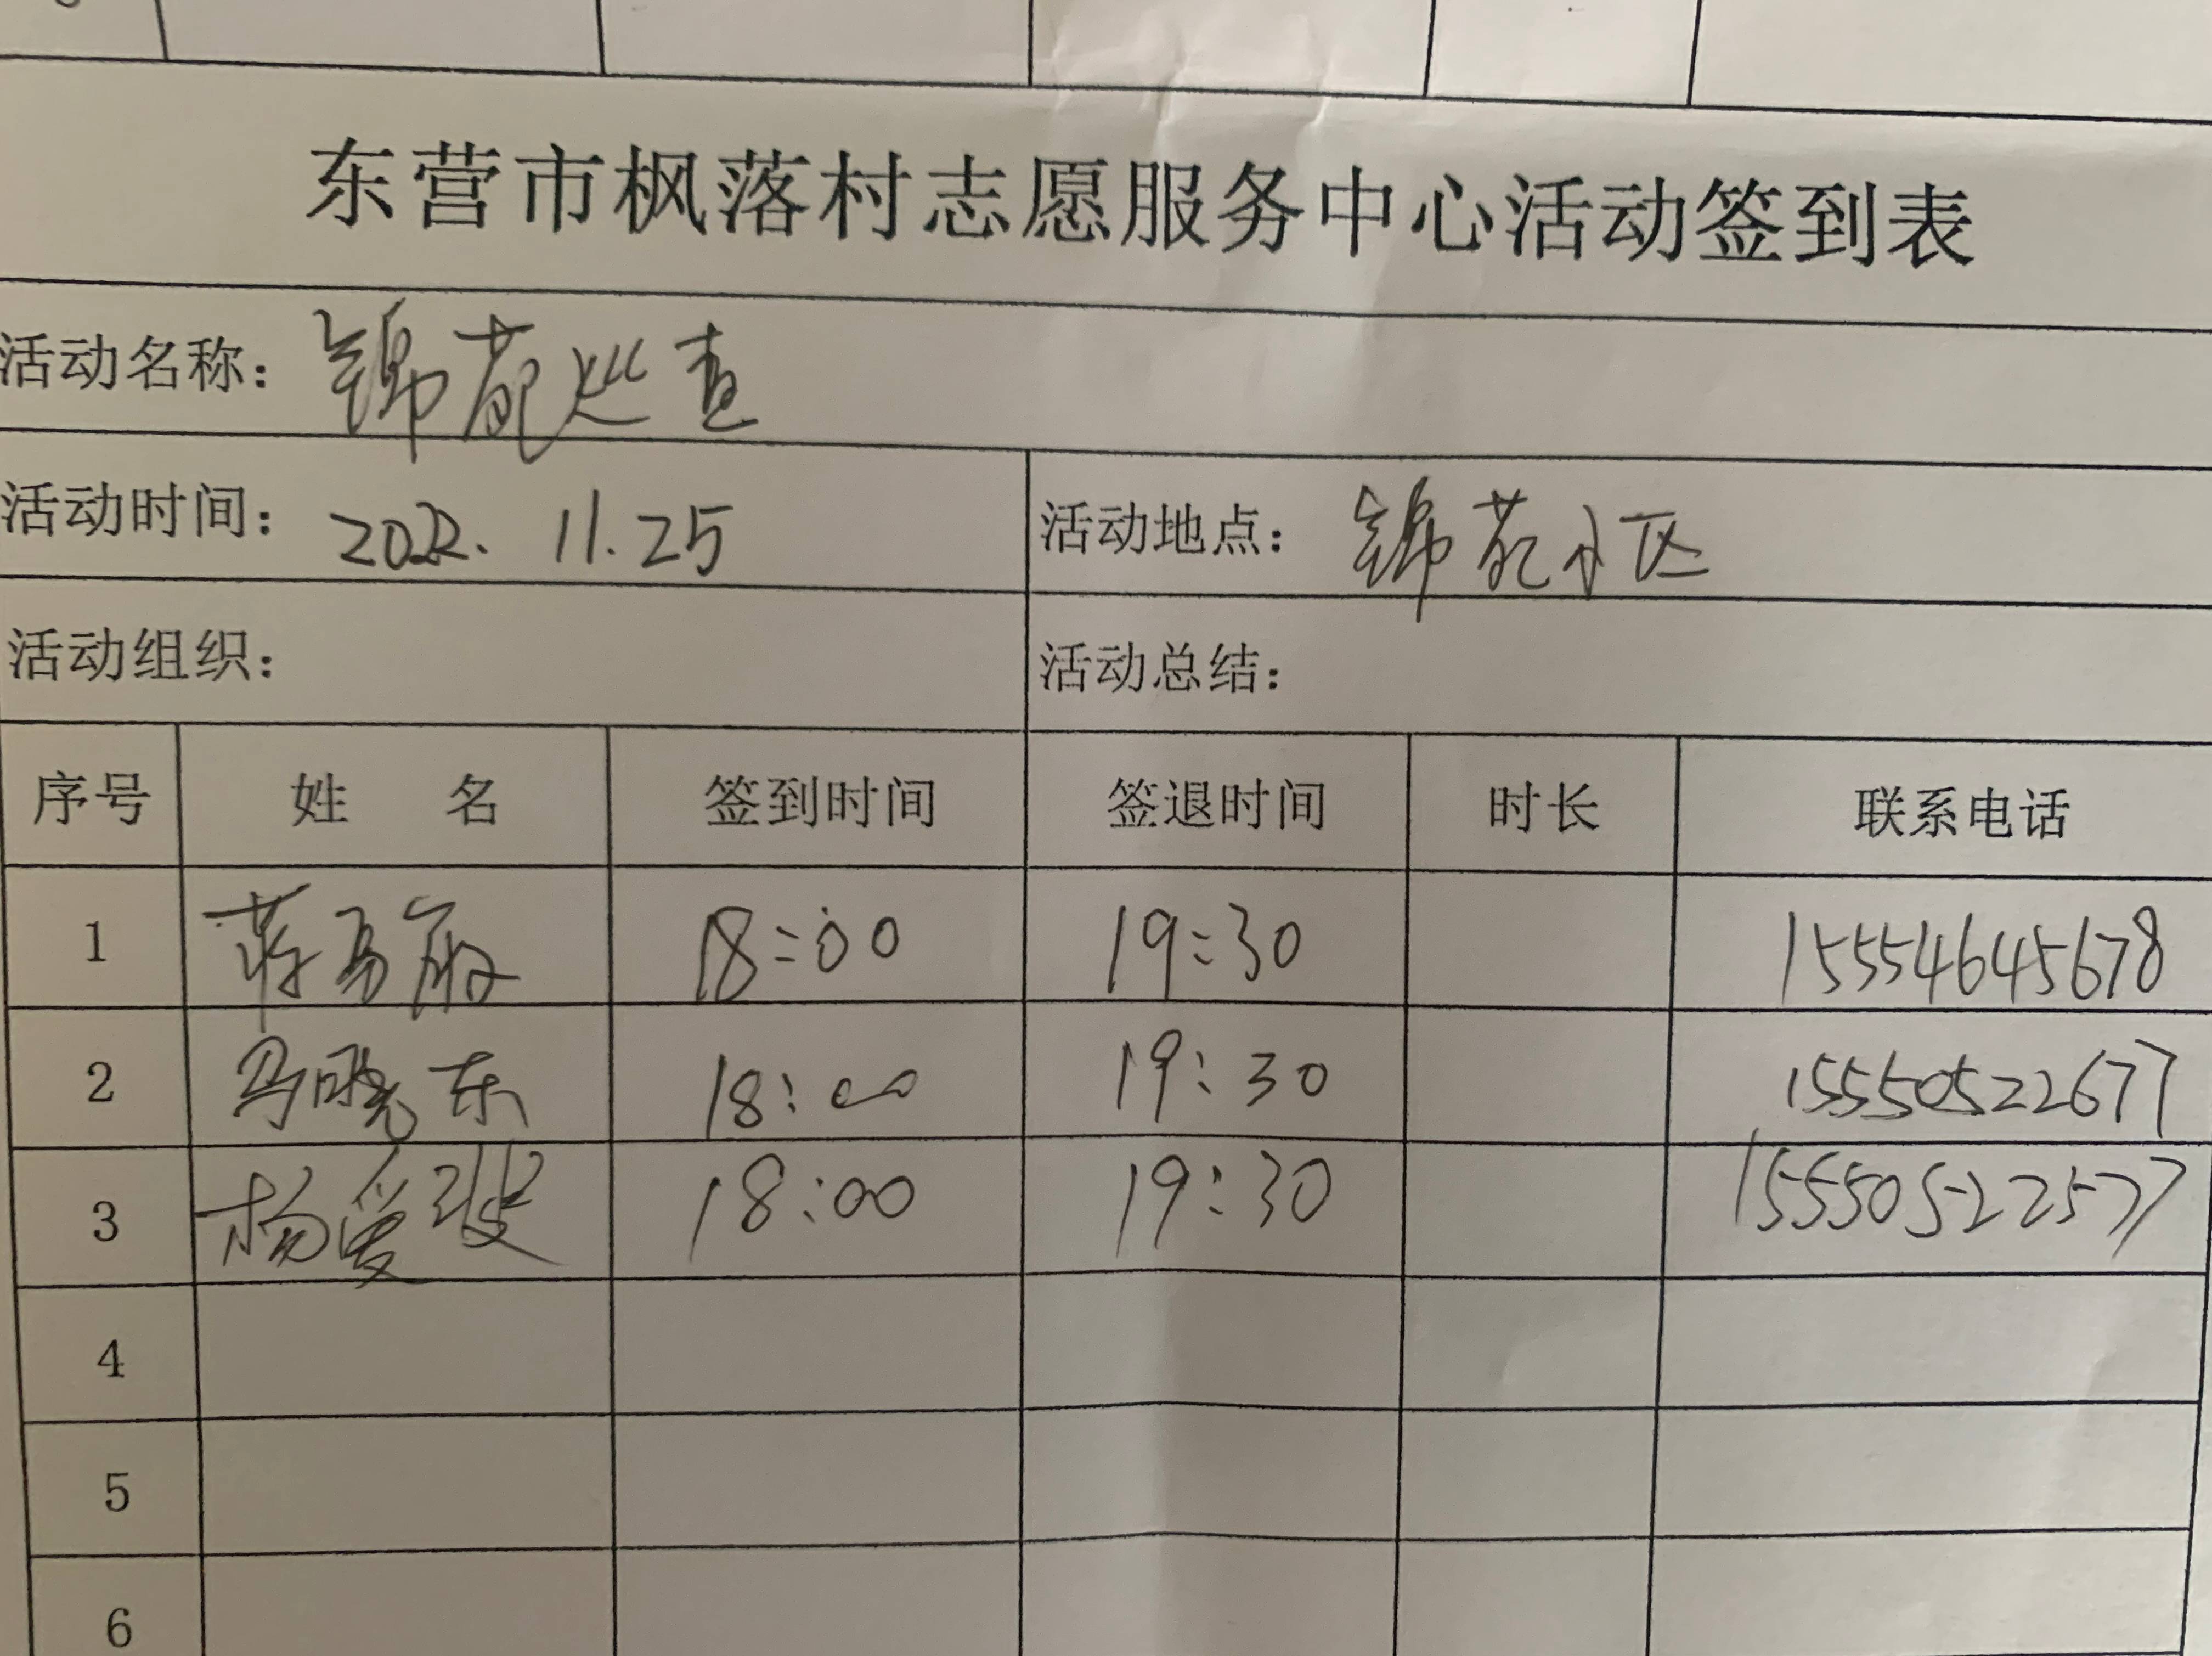 东营市枫落村志愿服务中心活动签到表
活动名称：锦苑巡查
活动时间：2022.11.25 活动地点：锦苑小区
活动组织： 活动总结：
序号 姓 名 签到时间 签退时间 时长 联系电话
1 蒋 18:00 19:30 15554645678
2 马晓东 18:00 19:30 15550522677
3 杨爱玻 18:00 19:30 15550522577
4
5
6